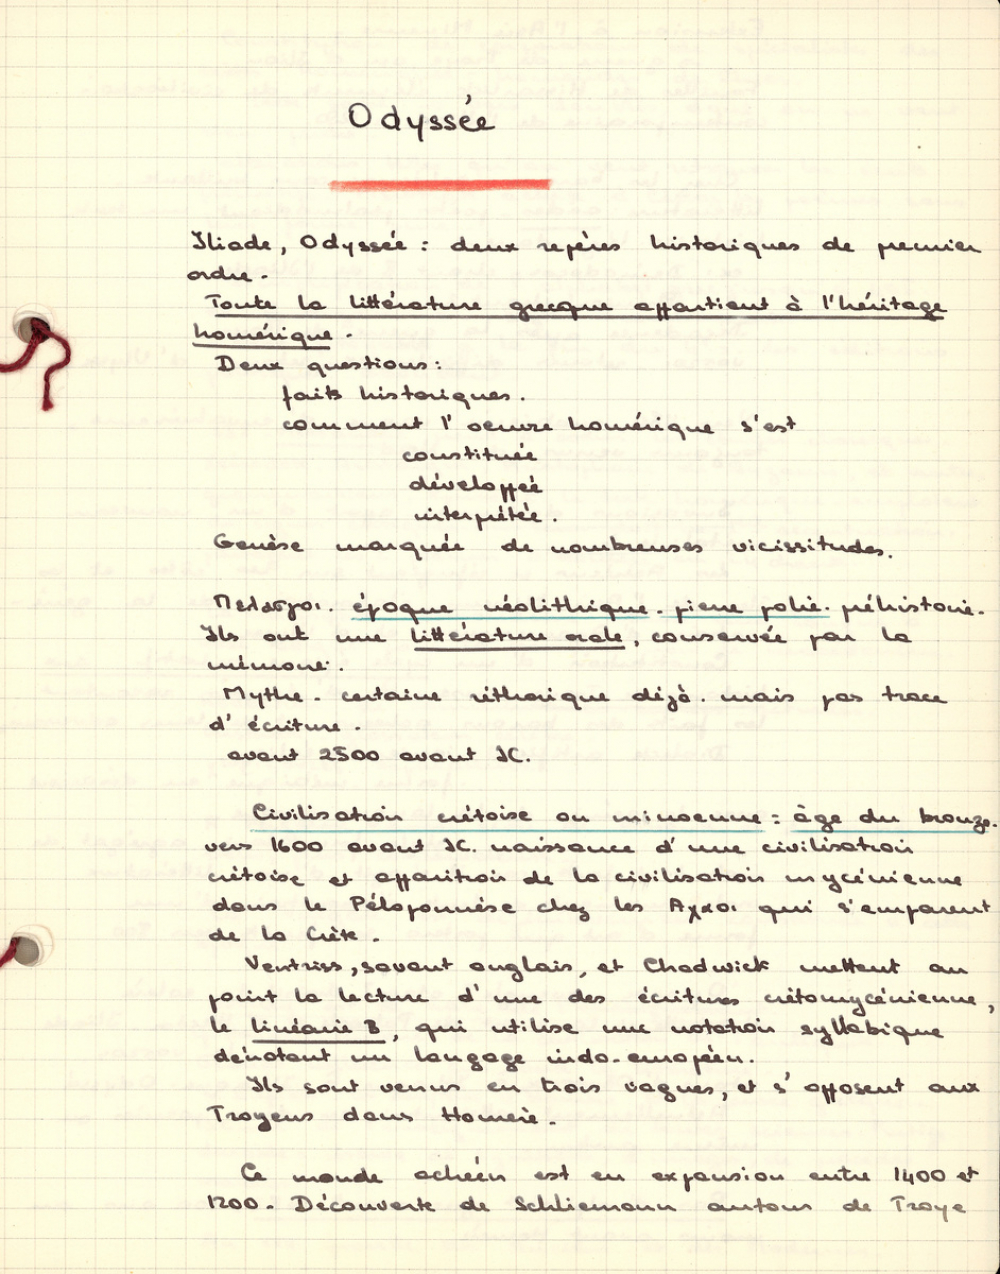 Odyssée
Iliade, Odyssée : deux repères historiques de premier
ordre.
Toute la littérature grecque appartient à l'héritage
homérique.
Deux questions :
faits historiques.
comment l'oeuvre homérique s'est
constituée
développée
interprétée.
Genèse marquée de nombreuses vicissitudes.
Πελασγοι. époque néolithique. pierre polie. préhistoire.
Ils ont une littérature orale, conservée par la
mémoire.
Mythe. certaine réthorique déjà. mais pas trace
d'écriture.
avant 2500 avant JC.
Civilisation crétoise ou minoenne : âge du bronze.
vers 1600 avant JC. naissance d'une civilisation
crétoise et apparition de la civilisation mycénienne
dans le Péloponnèse chez les Αχαοι qui s'emparent
de la Crète.
Ventriss, savant anglais, et Chadwick mettent au
point la lecture d'une des écritures crétomycénienne,
le linéaire B, qui utilise une notation syllabique
dénotant un langage indo-européen.
Ils sont venus en trois vagues, et s'opposent aux
Troyens dans Homère.
Ce monde achéen est en expansion entre 1400 et
1200. Découverte de Schliemann autour de Troye